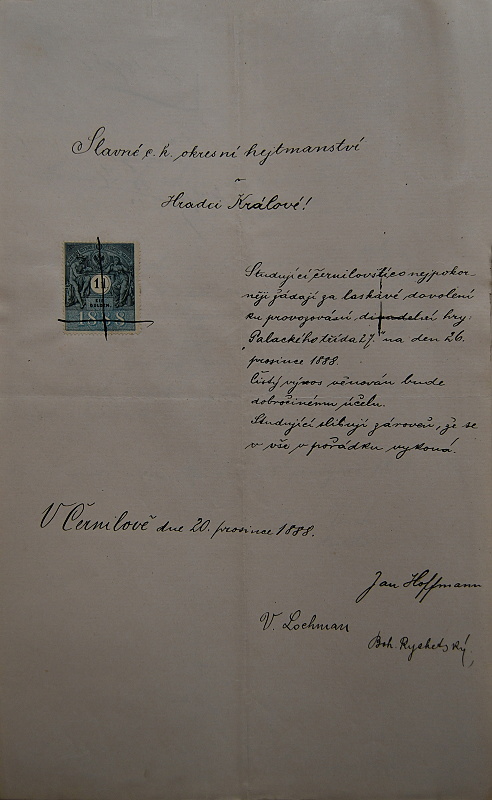 Slavné c. k. okresní hejtmanství
v
Hradci Králové!
1
EIN
GULDEN
1888
Studující černilovští co nejpokor-
něji žádají za laskavé dovolení
ku provozování divadelní hry:
"Palackého třída 27." na den 26.
prosince 1888.
Čistý výnos věnován bude
dobročinnému účelu.
Studující slibují zároveň, že se
v vše v pořádku vykoná.
V Černilově dne 20. prosince 1888.
Jan Hoffmann
V. Lochman
Boh. Ryshetský